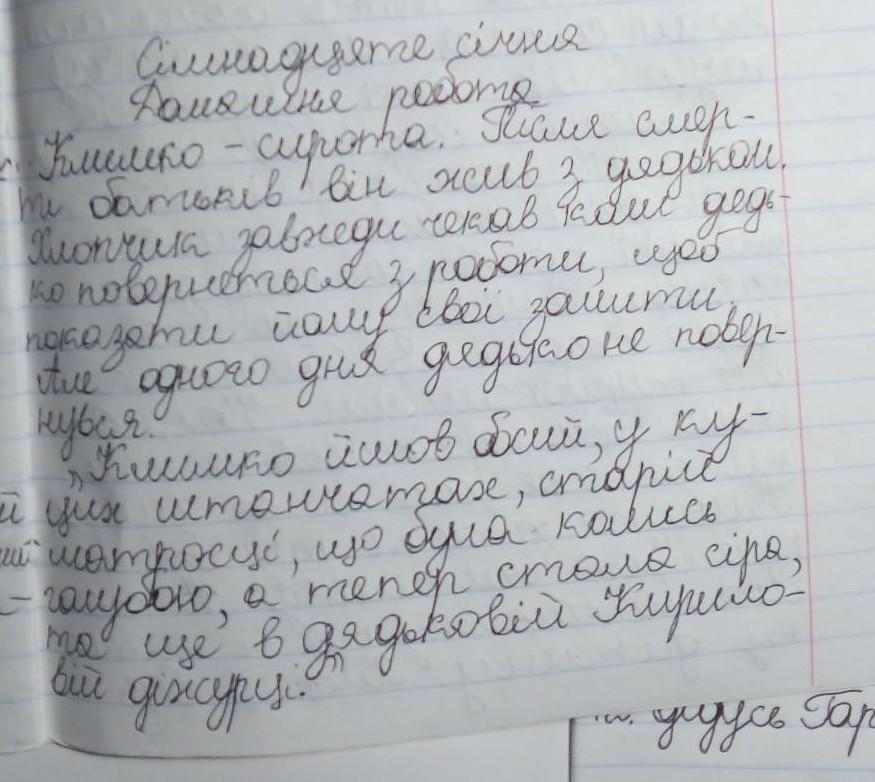 Сімнадцяте січня
Домашня робота
Климко - сирота. Після смер-
ти батьків він жив з дядьком.
Хлопчик завжди чекав коли дядь-
ко повернеться з роботи, щоб
показати йому свої
Але одного дня дядько не повер-
нувся.
„Климко йшов босий, у ку-
цих штанчатах, старій
й
матросці, що була колись
ий
голубою, а тепер стала сіра,
-
та ще в дядьковій Кирило-
вій діжурці.”
дідусь Гар